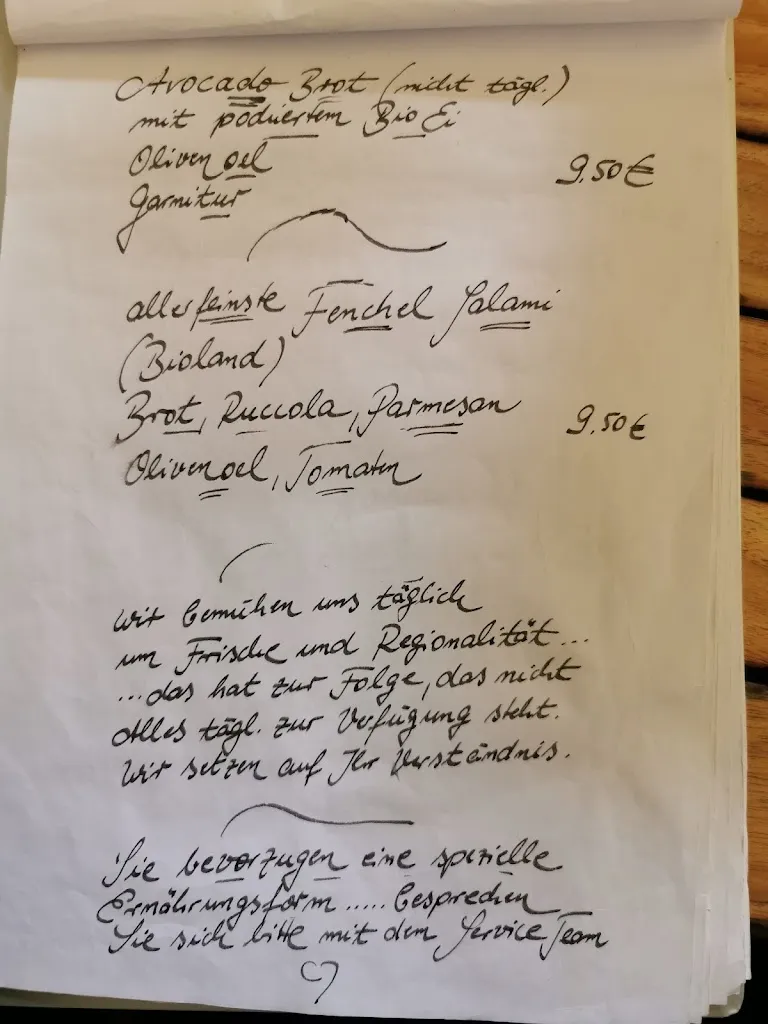 Avocado Brot (nicht tägl.)
mit pochiertem Bio Ei
Olivenoel
9.50€
Garnitur
allerfeinste Fenchel Salami
(Bioland)
Brot, Ruccola, Parmesan
9.50€
Olivenoel, Tomaten
Wir bemühen uns täglich
um Frische und Regionalität...
...das hat zur Folge, das nicht
Alles tägl. zur Verfügung steht.
Wir setzen auf Ihr Verständnis.
Sie bevorzugen eine spezielle
Ernährungsform ..... besprechen
Sie sich bitte mit dem Service Team